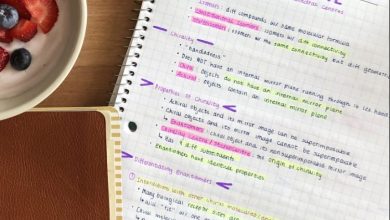 Isomers: diff compounds w/ same molecular formula
Constitutional Isomers: isomers w/ diff connectivity
Stereoisomers: isomers w/ the same connectivity but diff geometry
→ Chirality
• "handedness"
• Does NOT have an internal mirror plane running through it
• Chiral: objects do not have an internal mirror plane
• Achiral: objects contain an internal mirror plane
→ Properties of Chirality
• Achiral objects and its mirror image can be superimposable
• Chiral objects and its mirror image cannot be superimposable
↳ Enantiomers: chiral object and its nonsuperimposable mirror image
• Chirality Centre / Stereocentre: the origin of chirality
↳ has 4 diff substituents
• Enantiomers have identical properties
→ Differentiating Enantiomers
① Interactions with other chiral molecules
• Many biological receptor sites are